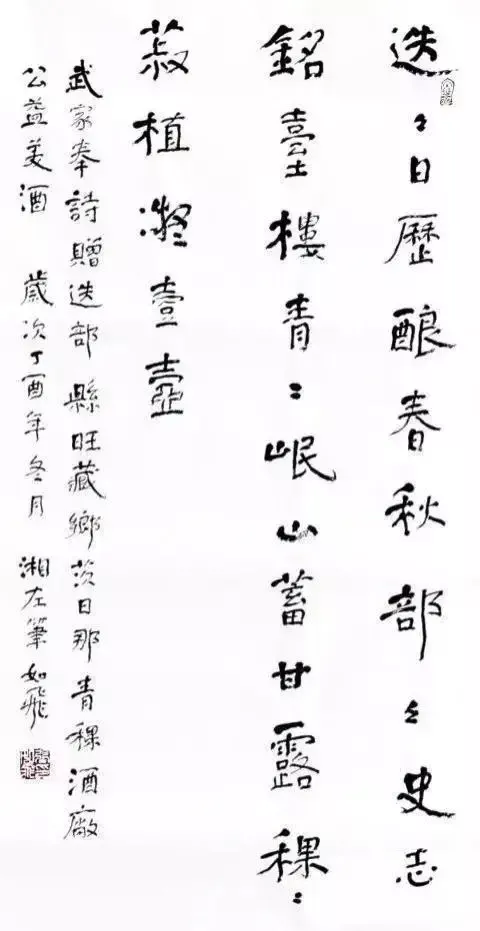 迭々日歷酿春秋部々史志
銘臺樓青々岷山蓄甘露稞々
菽植凝壹壺
武家奉詩贈迭部縣旺藏鄉茨日那青稞酒廠
公益美酒 歲次丁酉年冬月 湘左筆如飛